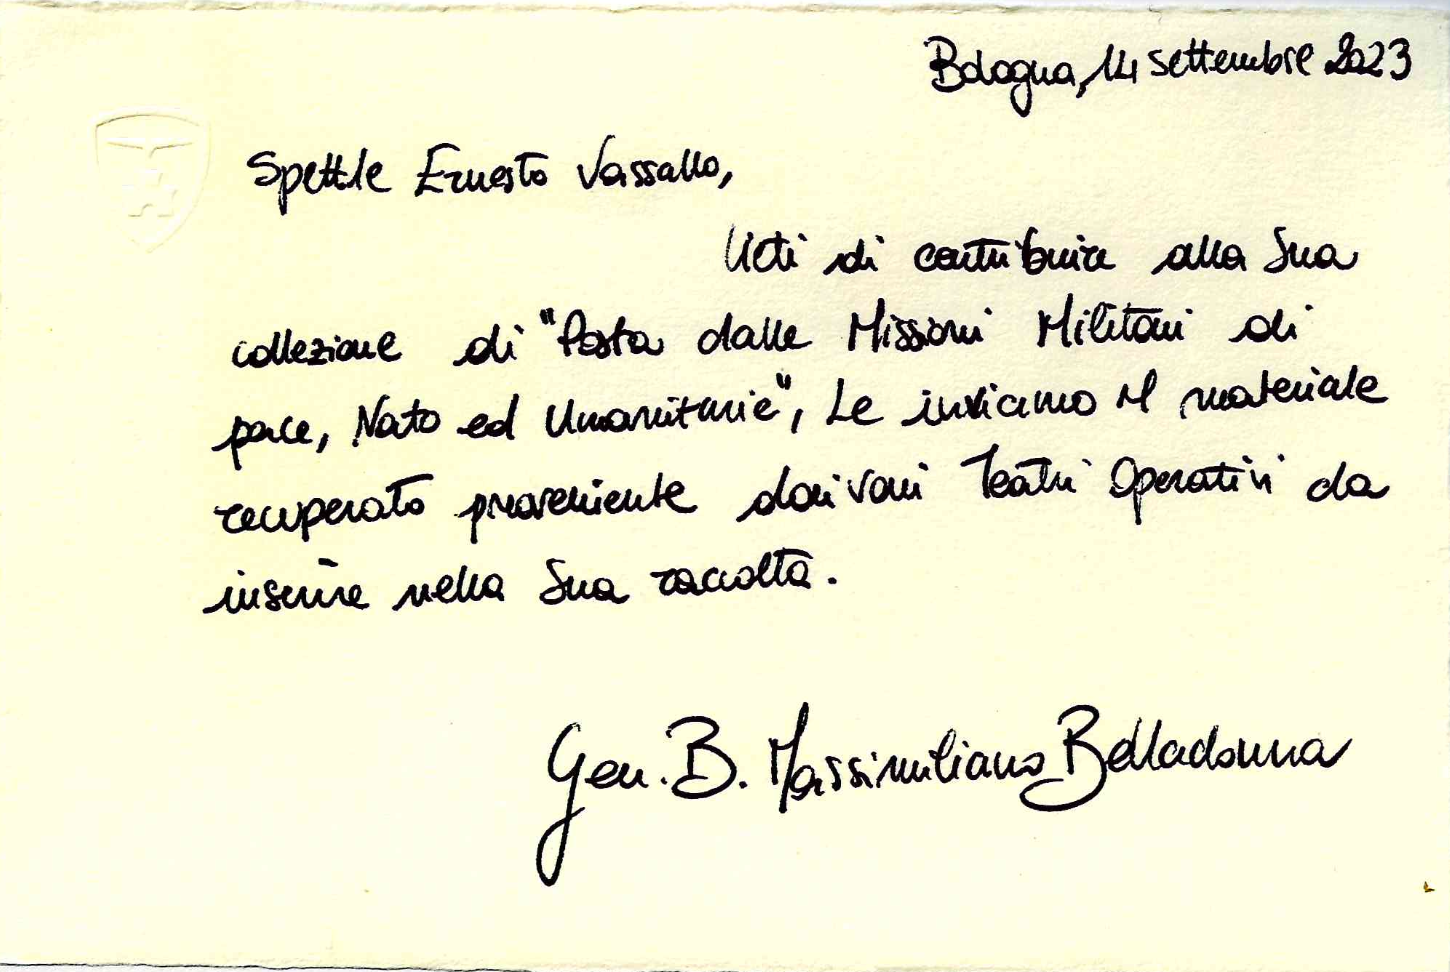 Bologna, 14 settembre 2023
Spett.le Ernesto Vassallo,
Lieti di contribuire alla Sua
collezione di "Posta dalle Missioni Militari di
pace, Nato ed Umanitarie", Le inviamo il materiale
recuperato proveniente dai vari Teatri Operativi da
inserire nella Sua raccolta.
Gen. B. Massimiliano Belladonna